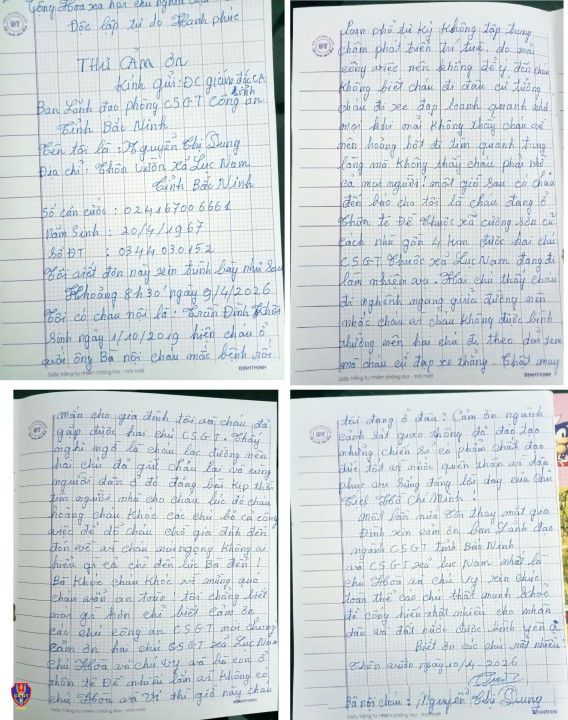 Cộng Hòa xã hội chủ nghĩa Việt
Độc lập tự do Hạnh phúc
THƯ CẢM ƠN
Kính gửi: ĐC giám đốc CA
tỉnh
Ban Lãnh đạo phòng CSGT Công an
Tỉnh Bắc Ninh
Tên tôi là: Nguyễn Thị Dung
Địa chỉ: Thôn Vườn xã Lục Nam
Tỉnh Bắc Ninh
Số căn cước: 024167006661
Năm Sinh: 20/4/1967
Số ĐT: 0344030152
Tôi viết đơn này xin trình bày như sau
Khoảng 8h30' ngày 9/4/2026
Tôi có cháu nội là: Trần Đình Khôi
Sinh ngày 1/10/2019 hiện cháu ở
với ông Bà nội cháu mắc bệnh rối
Giấy trắng tự nhiên chống lóa - mỏi mắt
ĐỊNH THỊNH
loạn phổ tự kỷ không tập trung
chậm phát triển trí tuệ, do mải
công việc nên không để ý đến cháu
không biết cháu đi đâu cứ tưởng
cháu đi xe đạp loanh quanh nhà
mọi khi mãi không thấy cháu về
nên hoảng hốt đi tìm quanh trong
làng mà không thấy cháu phải nhờ
cả mọi người, một giờ sau có cháu
đến báo cho tôi là cháu đang ở
Thôn tè Dề thuộc xã cương sơn cũ
cách nhà gần 4 km được hai chú
CSGT Thuộc xã Lục Nam đang đi
làm nhiệm vụ. Hai chú thấy cháu
đi nghênh ngang giữa đường nên
nhắc cháu vì cháu không được bình
thường nên hai chú đi theo dõi xem
mà cháu cứ đạp xe thẳng. Thật may
Giấy trắng tự nhiên chống lóa - mỏi mắt
ĐỊNH THỊNH
mắn cho gia đình tôi và cháu đã
gặp được hai chú CSGT. Thấy
nghi ngờ là cháu lạc đường nên
hai chú đã giữ cháu lại và cùng
người dân ở đó đăng bài kịp thời
tìm người nhà cho cháu lúc đó cháu
hoảng cháu khóc các chú bỏ cả công
việc để dỗ cháu chờ gia đình đến
đón về vì cháu mơ ngọng không
hiểu gì cả chỉ đến lúc Bà đến!
Bà khóc cháu khóc vì mừng quá
cháu vẫn an toàn! tôi chẳng biết
mong gì hơn chỉ biết cảm ơn
các chú công an CSGT nói chung
cảm ơn hai chú CSGT xã Lục Nam
chú Hoà và chú Vy và bà con ở
thôn tè Dề nhiều lắm ạ! Không có
chú Hoà và Vi thì giờ này cháu
Giấy trắng tự nhiên chống lóa - mỏi mắt
ĐỊNH THỊNH
CSGT
tôi đang ở đâu: Cảm ơn ngành
cảnh sát giao thông đã đào tạo
những chiến sĩ có phẩm chất đạo
đức tốt vì nước quên thân vì dân
phục vụ sống đúng lời dạy của Chủ
Tịch Hồ Chí Minh!
Một lần nữa tôn thay mặt gia
Đình xin cảm ơn ban Lãnh đạo
ngành CSGT tỉnh Bắc Ninh
và CSGT xã lục Nam nhất là
chú Hoà và chú Vy xin chúc
toàn thể các chú thật mạnh khỏe
để cống hiến thật nhiều cho nhân
dân và đất nước được bình yên ạ
Biết ơn các chú rất nhiều
Thôn vườn ngày 10/4-2026
Bà nội cháu: Nguyễn Thị Dung
Giấy trắng tự nhiên chống lóa - mỏi mắt
ĐỊNH THỊNH